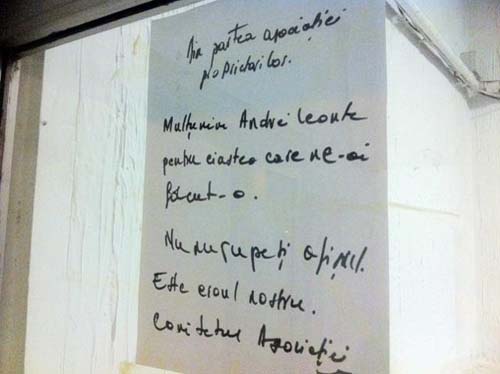 Din partea asociației
proprietarilor.
Mulțumim Andrei Leonte
pentru ciastea care ne-ai
făcut-o.
Nu nu rupeți afișul.
Este eroul nostru.
Comitetul Asociației